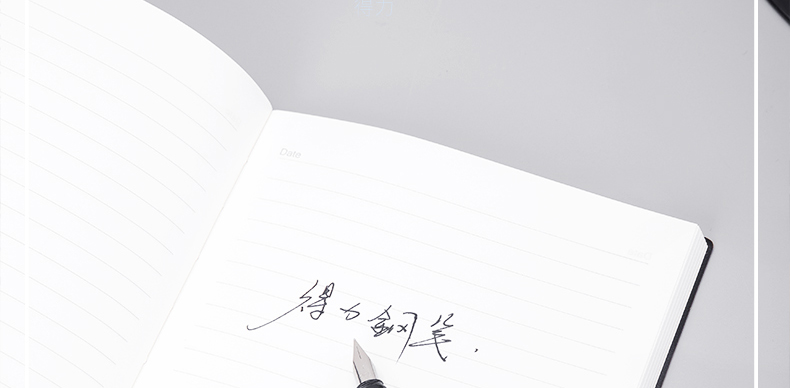 Date
得力鋼笔.